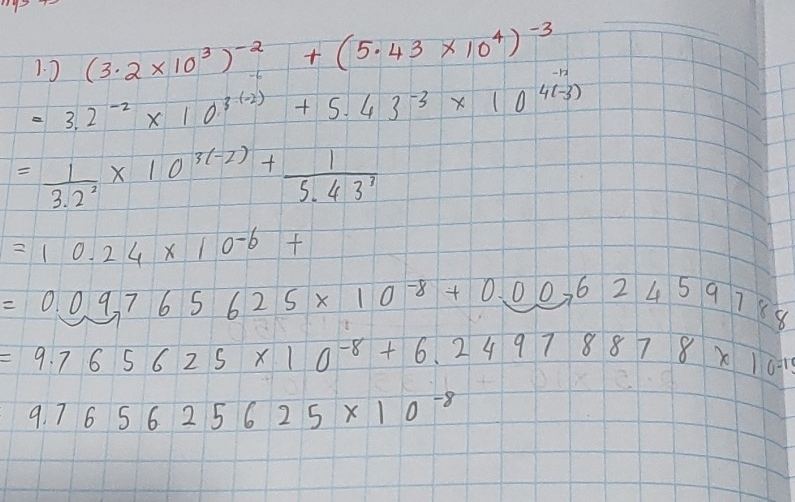 1.) (3.2 × 10³)⁻² + (5.43 × 10⁴)⁻³
= 3.2⁻² × 10³⁽⁻²⁾ + 5.43⁻³ × 10⁴⁽⁻³⁾
= 1/3.2² × 10³⁽⁻²⁾ + 1/5.43³
= 10.24 × 10⁻⁶ +
= 0.09765625 × 10⁻⁸ + 0.0062459788
= 9.765625 × 10⁻⁸ + 6.249788788 × 10
9.765625625 × 10⁻⁸